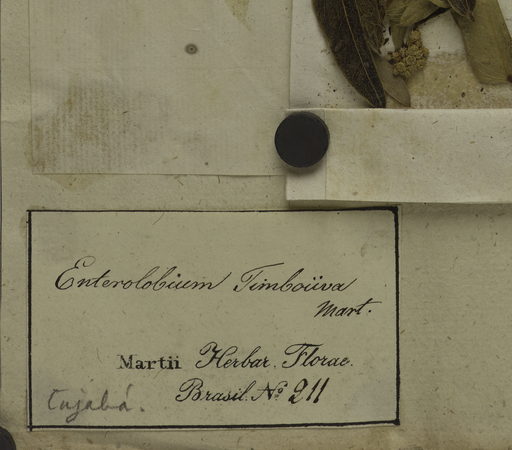 Enterolobium Timboüva
Mart.
Martii Herbar. Florae.
Brasil. No. 211
Cujabá.